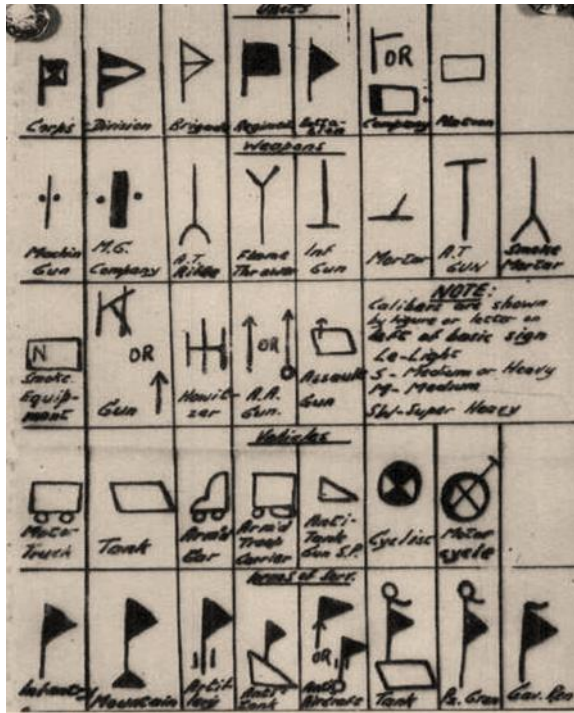 UNITS
OR
Corps
Division
Brigade
Regiment
Batta-
lion
Company
Platoon
Weapons
Machin
Gun
M.G.
Company
A.T.
Rifle
Flame
Thrower
Inf
Gun
Mortar
A.T
GUN
Smoke
Mortar
N
Smoke
Equip-
ment
OR
Gun
Howit-
zer
OR
A.A.
Gun.
Assault
Gun
NOTE:
Calibers are shown
by figure or letter on
left of basic sign
La-Light
S - Medium or Heavy
M- Medium
SW-Super Heavy
Vehicles
Motor
Truck
Tank
Arm'd
Car
Arm'd
Troop
Carrier
Anti-
Tank
Gun S.P.
Cyclist
Motor
cycle
Arms of Serv.
Infantry
Mountain
Artil
lery
Anti
tank
OR
Anti
Aircraft
Tank
Pz. Gren
Cav. Ren